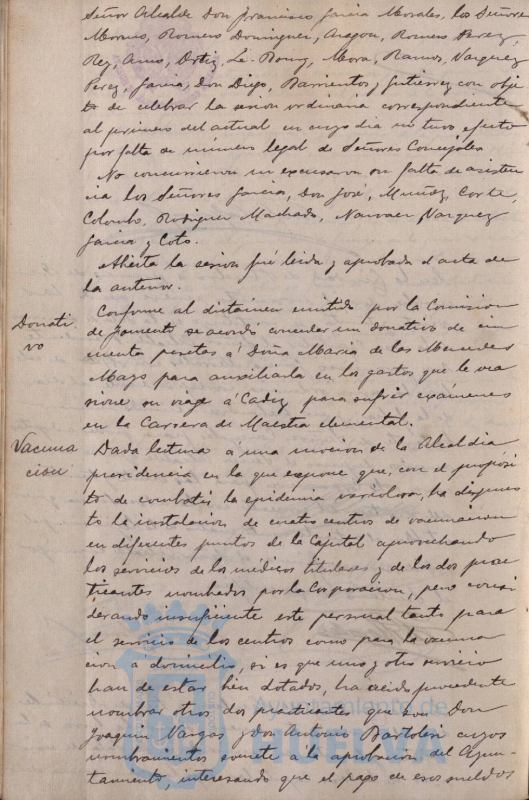 Señor Alcalde Don Francisco Garcia Morales, los Señores
Moreno, Romero Dominguez, Aragon, Romero Perez,
Rey, Amo, Ortiz, Le-Bourg, Mora, Ramos, Vazquez
Perez, Garcia, Don Diego, Barrientos y Gutierrez con obje
to de celebrar la sesion ordinaria correspondiente
al primero del actual en cuyo dia no tuvo efecto
por falta de número legal de Señores Concejales
No concurrieron ni excusaron su falta de asisten
cia los Señores Garcia, Don José, Muñoz, Corte,
Colombo, Rodriguez Machado, Narvaez, Vazquez
Garcia y Coto.
Abierta la sesion fué leida y aprobada el acta de
la anterior.
Donati
vo
Conforme al dictamen emitido por la Comision
de fomento se acordó conceder un donativo de cin
cuenta pesetas á Doña Maria de las Mercedes
Mayo para auxiliarla en los gastos que le oca
sione su viage á Cadiz para sufrir exámenes
en la Carrera de Maestra elemental.
Vacuna
cion
Dada lectura á una mocion de la Alcaldia
presidencia en la que expone que, con el propósi
to de combatir la epidemia variolosa, ha dispues
to la instalacion de cuatro centros de vacunacion
en diferentes puntos de la Capital aprovechando
los servicios de los médicos titulares y de los dos prac
ticantes nombrados por la Corporacion, pero consi
derando insuficiente este personal tanto para
el servicio de los centros como para la vacuna
cion á domicilio, si es que uno y otro servicio
han de estar bien dotados, ha creido procedente
nombrar otros dos practicantes que son Don
Joaquin Vargas y Don Antonio Bartolesi cuyos
nombramientos somete á la aprobacion del Ayun-
tamiento, interesando que el pago de esos sueldos
Ayuntamiento de
HUELVA